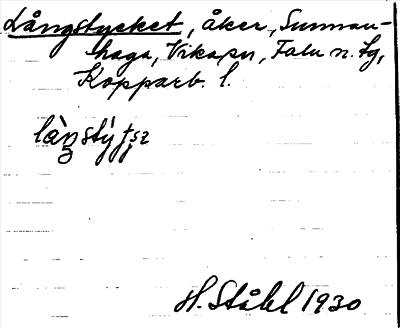 Långstycket, åker, Sunnan-
haga, Vika sn, Falu n. tg,
Kopparb. l.
H. Ståhl 1930